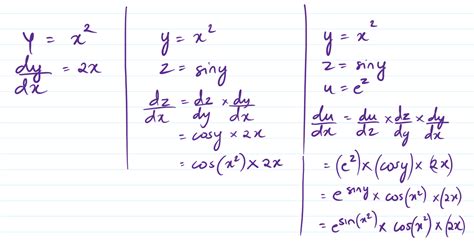 y = x²
dy/dx = 2x
y = x²
z = siny
dz/dx = dz/dy × dy/dx
= cosy × 2x
= cos(x²) × 2x
y = x²
z = siny
u = e^z
du/dx = du/dz × dz/dy × dy/dx
= (e^z) × (cosy) × (2x)
= e^siny × cos(x²) × (2x)
= e^sin(x²) × cos(x²) × (2x)